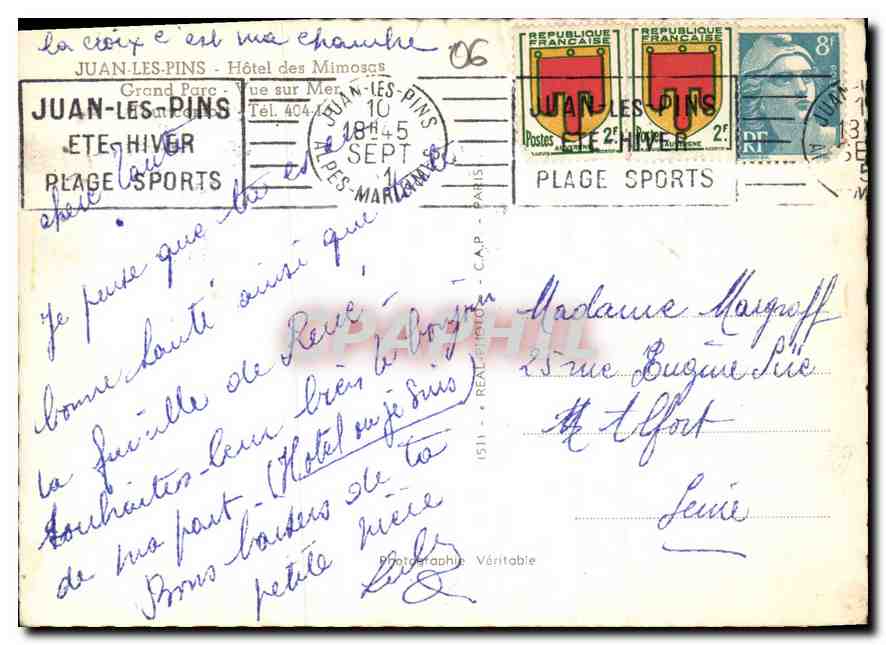 la croix c'est ma chambre
06
JUAN-LES-PINS - Hôtel des Mimosas
Grand Parc - Vue sur Mer
Tél. 404-1
JUAN-LES-PINS
ETE-HIVER
PLAGE SPORTS
JUAN-LES-PINS
10
18H45
SEPT
ALPES-MARITIMES
REPUBLIQUE FRANÇAISE
Postes 2F
AUVERGNE
REPUBLIQUE FRANÇAISE
Postes 2F
AUVERGNE
8F
RF
JUAN-LES-PINS
ETE-HIVER
PLAGE SPORTS
chère Tante
Je pense que tu es en
bonne santé ainsi que toute
la famille de René,
souhaites-leur bien le bonjour
de ma part - (Hotel ou je suis)
Bons baisers de ta
petite nièce
1511 - « REAL-PHOTO » - C.A.P. - PARIS
Photographie Véritable
Madame Margraff
25 rue Eugène Süe
Mts Alfort
Seine
CPAPHIL